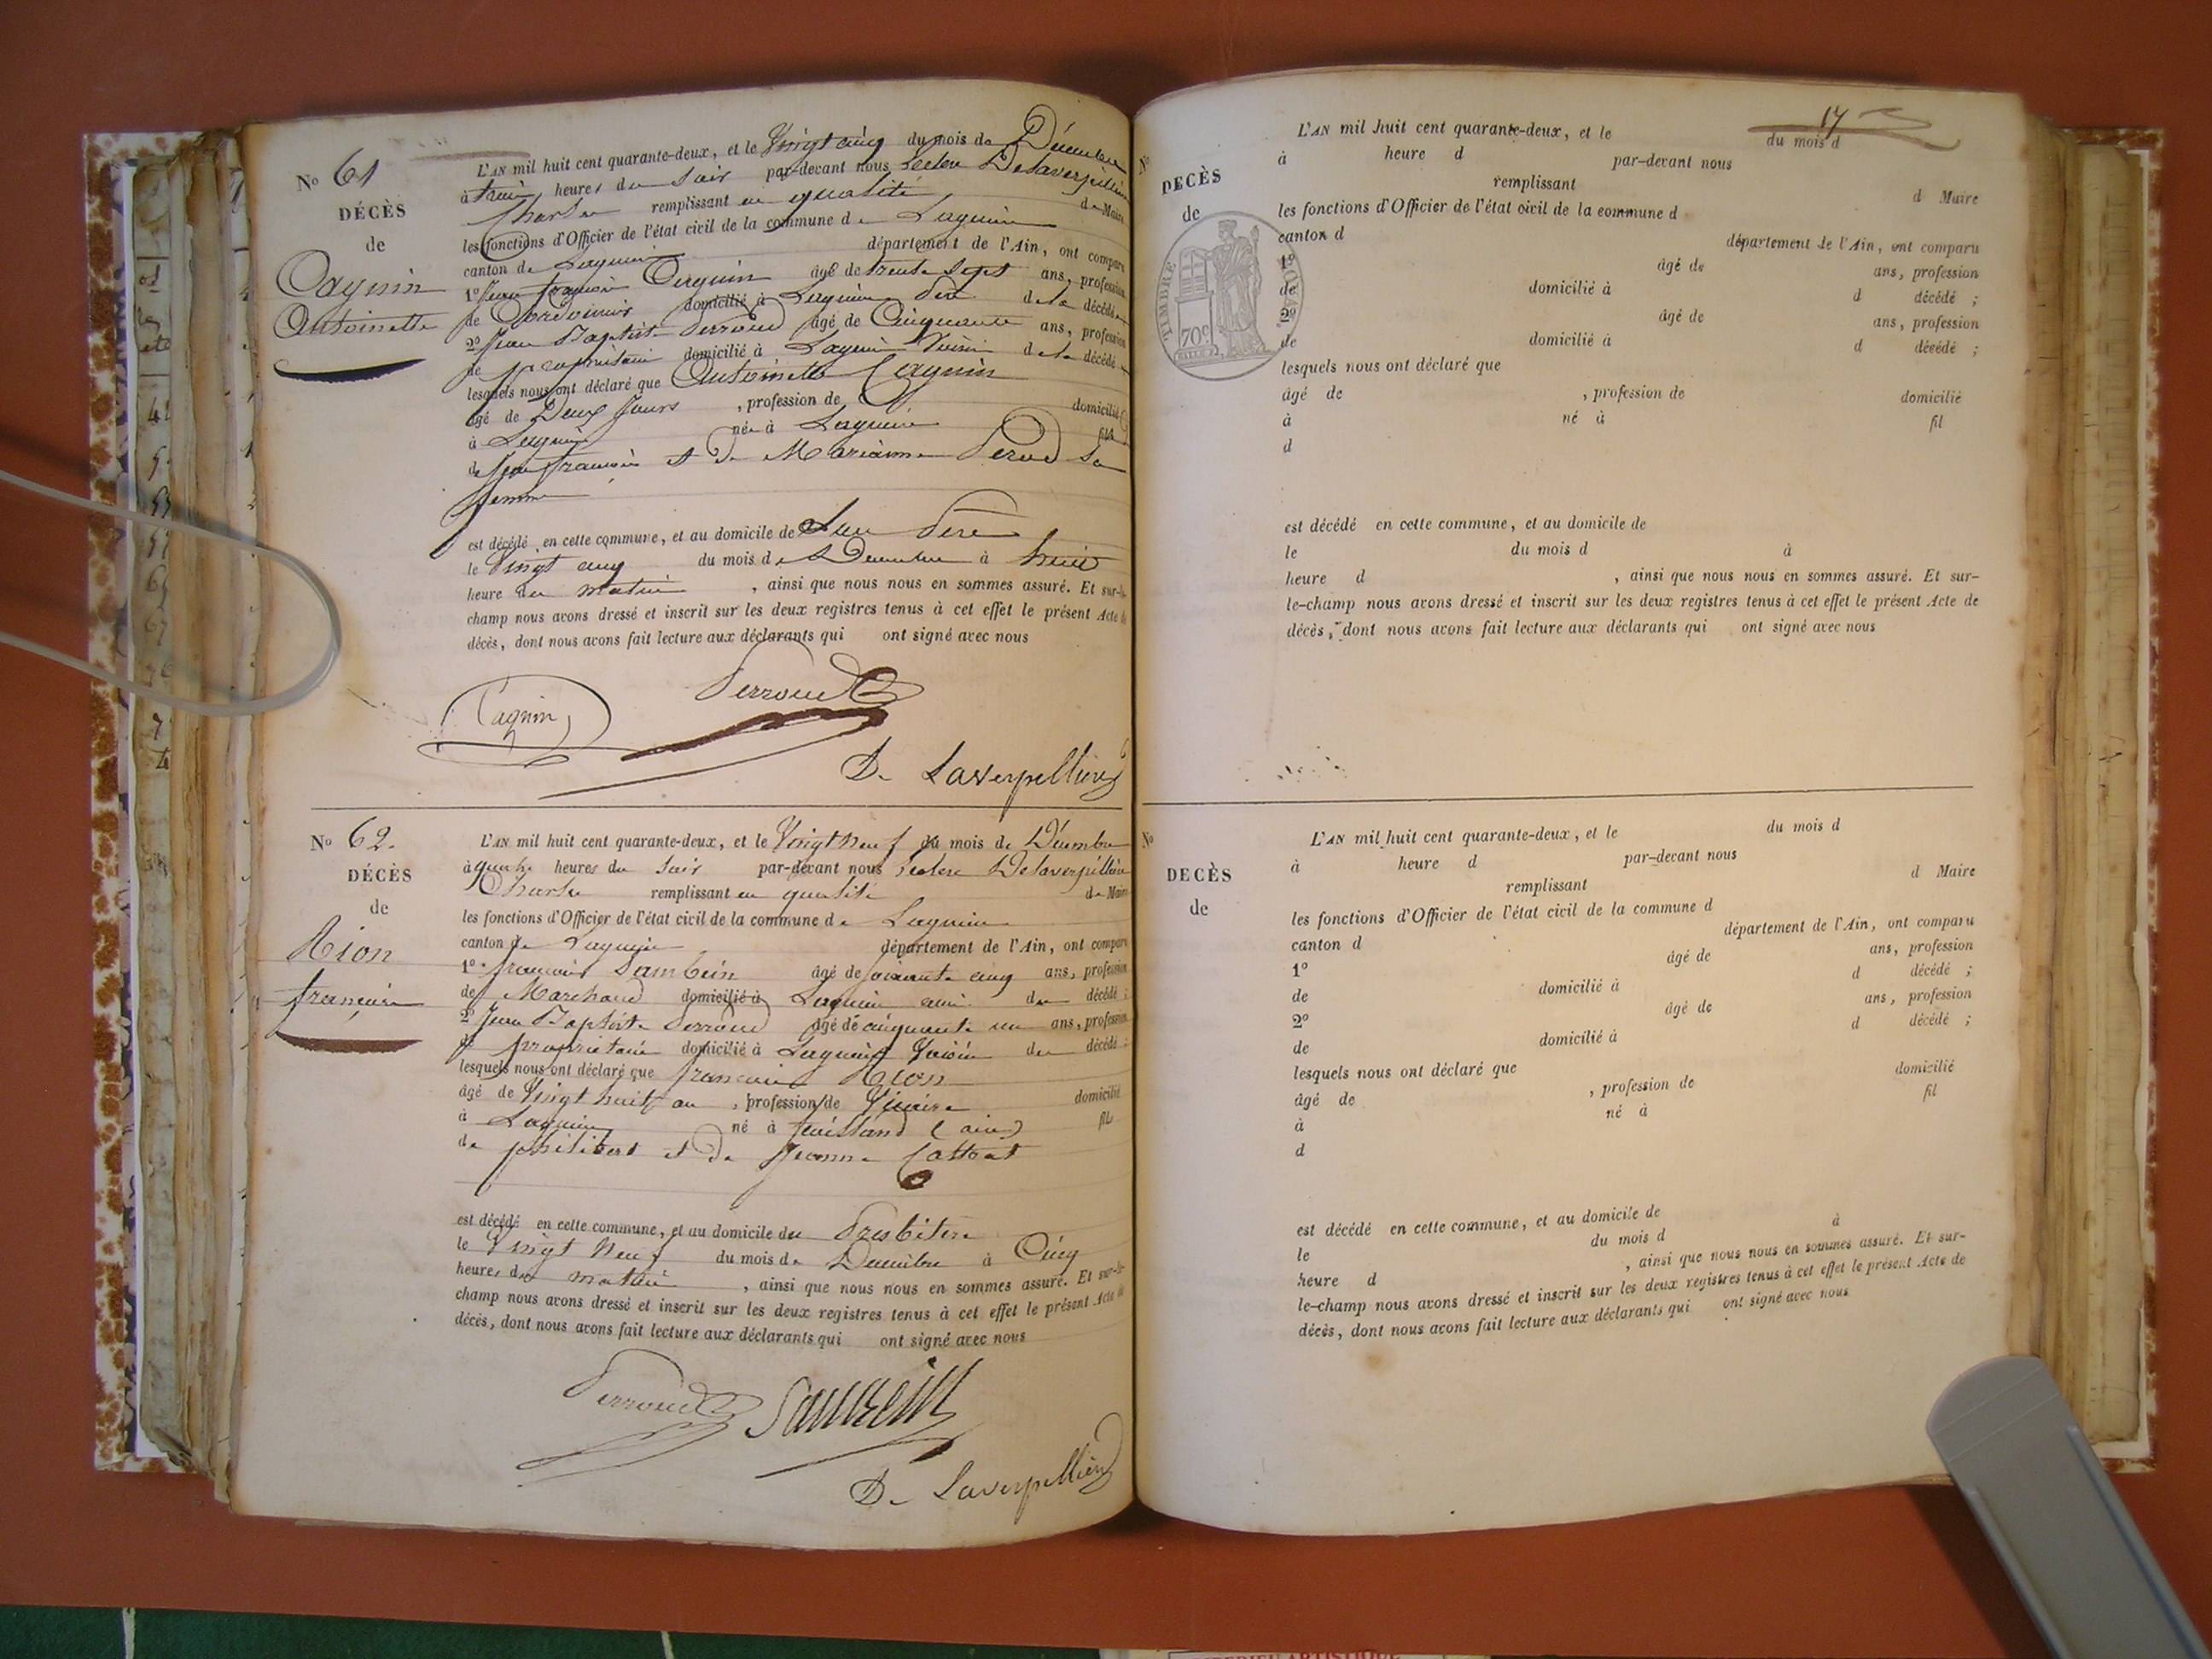 No 61
DÉCÈS
de
Cagnin
Antoinette
L'AN mil huit cent quarante-deux, et le Vingt cinq du mois de Décembre
à trois heures du Soir par-devant nous Leclerc Delaverpillière
Charles remplissant en qualité de Maire
les fonctions d'Officier de l'état civil de la commune de Lagnieu
canton de Lagnieu département de l'Ain, ont comparu
1o Jean françois Cagnin âgé de trente Sept ans, profession
de Cordonnier domicilié à Lagnieu Père de la décédée
2o Jean Baptiste Perroud âgé de Cinquante ans, profession
de propriétaire domicilié à Lagnieu Voisin de la décédée
lesquels nous ont déclaré que Antoinette Cagnin
âgé de Deux Jours , profession de domicilié
à Lagnieu née à Lagnieu fille
de Jean françois et de Mariamne Peroud Sa
femme
est décédé en cette commune, et au domicile de Son Père
le Vingt cinq du mois de Décembre à huit
heure du matin , ainsi que nous nous en sommes assuré. Et sur-le-
champ nous avons dressé et inscrit sur les deux registres tenus à cet effet le présent Acte de
décès, dont nous avons fait lecture aux déclarants qui ont signé avec nous
Perroud
Cagnin
De Laverpillière
No 62.
DÉCÈS
de
Rion
françois
L'AN mil huit cent quarante-deux, et le Vingt neuf du mois de Décembre
à quatre heures du Soir par-devant nous Leclerc Delaverpillière
Charles remplissant en qualité de Maire
les fonctions d'Officier de l'état civil de la commune de Lagnieu
canton de Lagnieu département de l'Ain, ont comparu
1o françois Sambein âgé de soixante cinq ans, profession
de Marchand domicilié à Lagnieu ami du décédé ;
2o Jean Baptiste Perroud âgé de cinquante un ans, profession
de propriétaire domicilié à Lagnieu Voisin du décédé ;
lesquels nous ont déclaré que françois Rion
âgé de Vingt huit an , profession de Vicaire domicilié
à Lagnieu né à (ain) fils
de philibert et de Jeanne
est décédé en cette commune, et au domicile du Presbitere
le Vingt Neuf du mois de Décembre à Cinq
heures du matin , ainsi que nous nous en sommes assuré. Et sur-le-
champ nous avons dressé et inscrit sur les deux registres tenus à cet effet le présent Acte de
décès, dont nous avons fait lecture aux déclarants qui ont signé avec nous
Perroud Sambein
De Laverpillière
17
No
DECÈS
de
TIMBRE ROYAL
70c
L'AN mil huit cent quarante-deux, et le du mois d
à heure d par-devant nous
remplissant d Maire
les fonctions d'Officier de l'état civil de la commune d
canton d département de l'Ain, ont comparu
1o âgé de ans, profession
de domicilié à d décédé ;
2o âgé de ans, profession
de domicilié à d décédé ;
lesquels nous ont déclaré que
âgé de , profession de domicilié
à né à fil
d
est décédé en cette commune, et au domicile de
le du mois d à
heure d , ainsi que nous nous en sommes assuré. Et sur-
le-champ nous avons dressé et inscrit sur les deux registres tenus à cet effet le présent Acte de
décès, dont nous avons fait lecture aux déclarants qui ont signé avec nous
No
DECÈS
de
L'AN mil huit cent quarante-deux, et le du mois d
à heure d par-devant nous
remplissant d Maire
les fonctions d'Officier de l'état civil de la commune d
canton d département de l'Ain, ont comparu
1o âgé de ans, profession
de domicilié à d décédé ;
2o âgé de ans, profession
de domicilié à d décédé ;
lesquels nous ont déclaré que
âgé de , profession de domicilié
à né à fil
d
est décédé en cette commune, et au domicile de
le du mois d à
heure d , ainsi que nous nous en sommes assuré. Et sur-
le-champ nous avons dressé et inscrit sur les deux registres tenus à cet effet le présent Acte de
décès, dont nous avons fait lecture aux déclarants qui ont signé avec nous